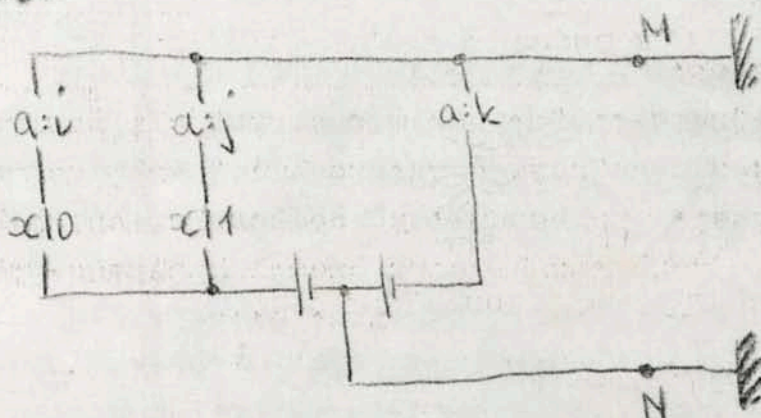 M
a:i a:j a:k
x:0 x:1
N